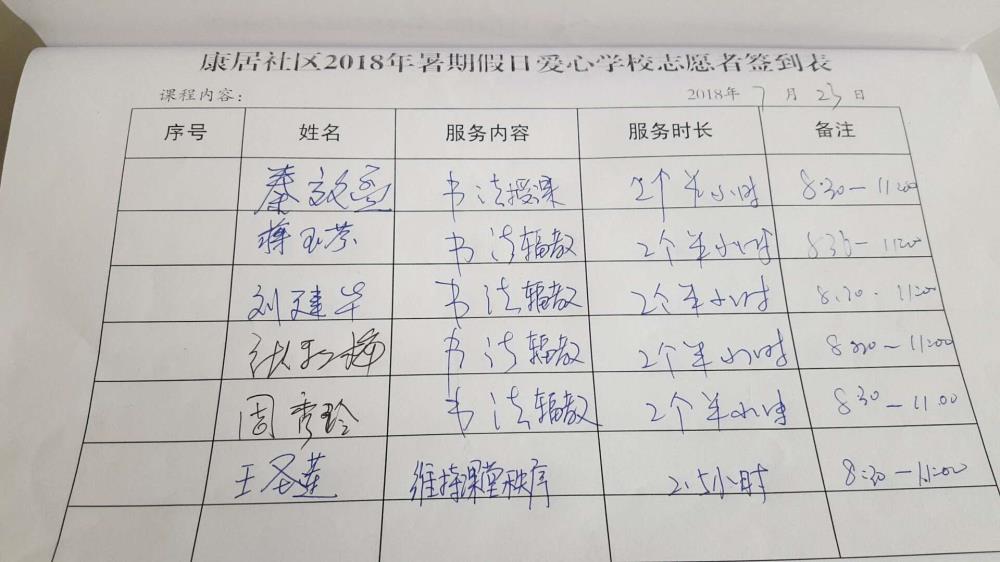 康居社区2018年暑期假日爱心学校志愿者签到表
课程内容: 2018年 7 月 23 日
序号 姓名 服务内容 服务时长 备注
秦 书法授课 2个半小时 8:30-11:00
蒋玉芬 书法辐教 2个半小时 830-1100
刘建华 书法辐教 2个半小时 8.30-1100
张 书法辐教 2个半小时 830-11:00
周秀玲 书法辐教 2个半小时 830-11.00
王圣莲 维持课堂秩序 2.5小时 8:30-11:00